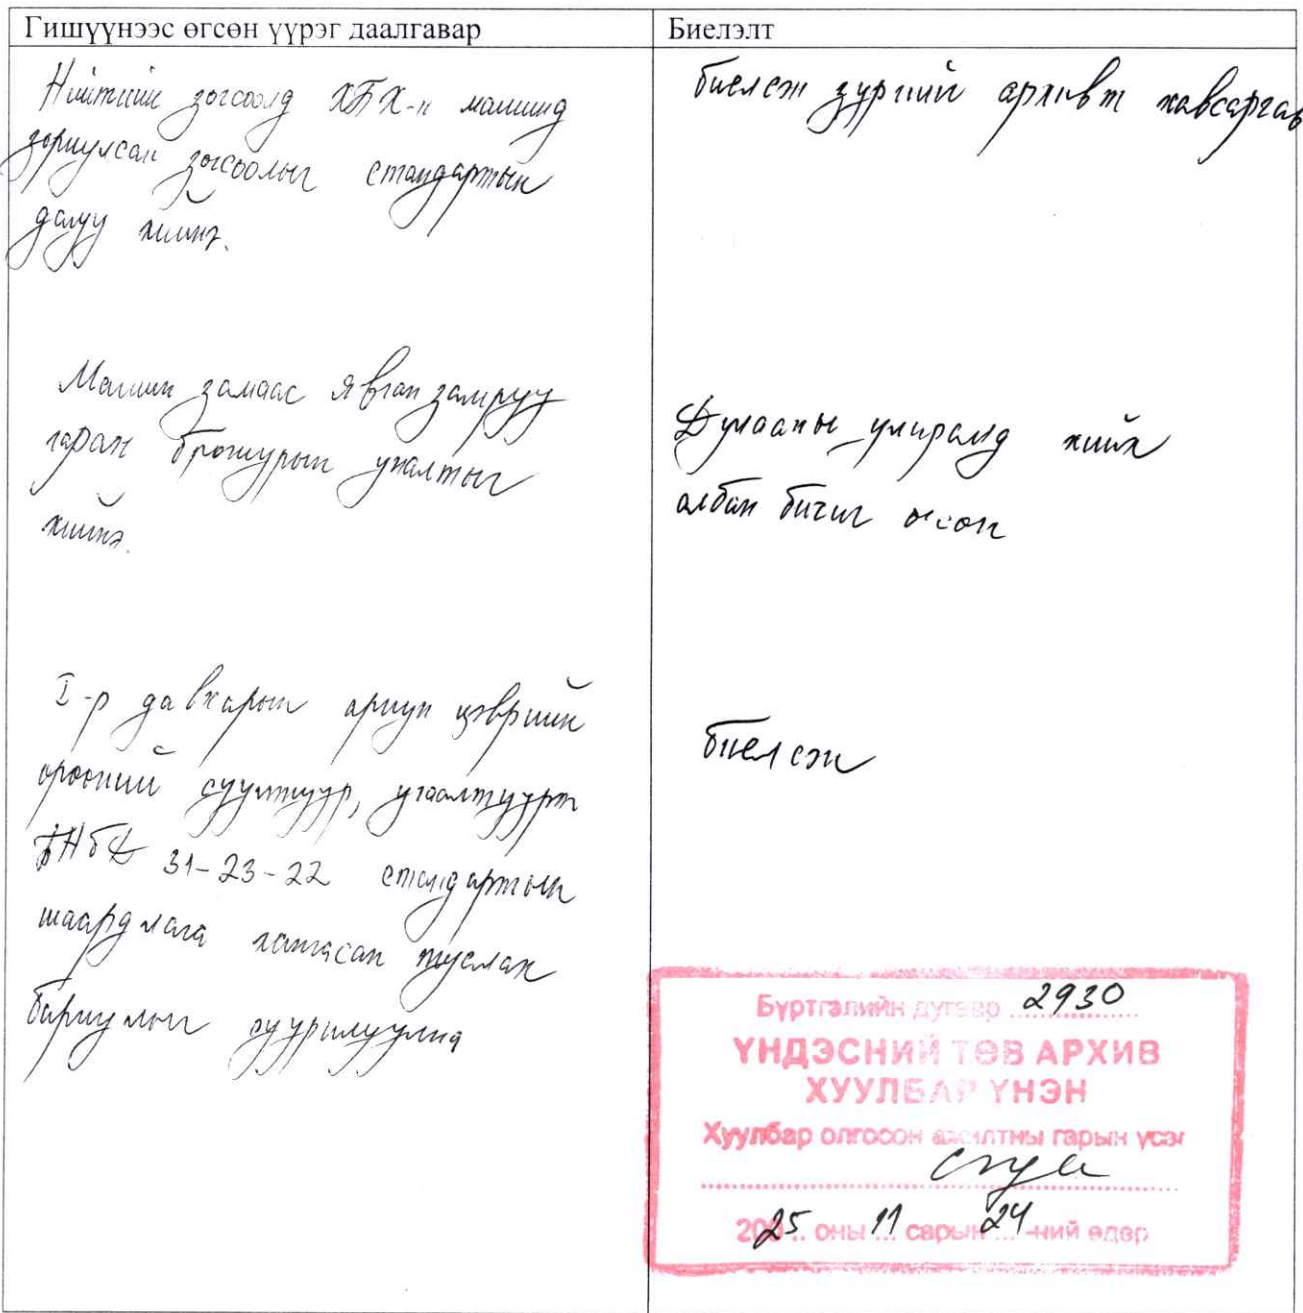 Гишүүнээс өгсөн үүрэг даалгавар
Биелэлт
Нийтийн зогсоолд ХБХ-н машинд
зориулсан зогсоолыг стандартын
дагуу хийнэ.
биелсэн зургийг архивт хавсаргав
Машин замаас явган замруу
гарах брожурын уналтыг
хийнэ.
Дулааны улиралд хийх
албан бичиг өгсөн
I-р давхарын ариун цэврийн
өрөөний суултуур, угаалтуурт
БНбД 31-23-22 стандартын
шаардлага хангасан туслах
бариулыг суурилуулна
биелсэн
Бүртгэлийн дугаар 2930
ҮНДЭСНИЙ ТӨВ АРХИВ
ХУУЛБАР ҮНЭН
Хуулбар олгосон ажилтны гарын үсэг
200 25 оны 11 сарын 24 -ний өдөр